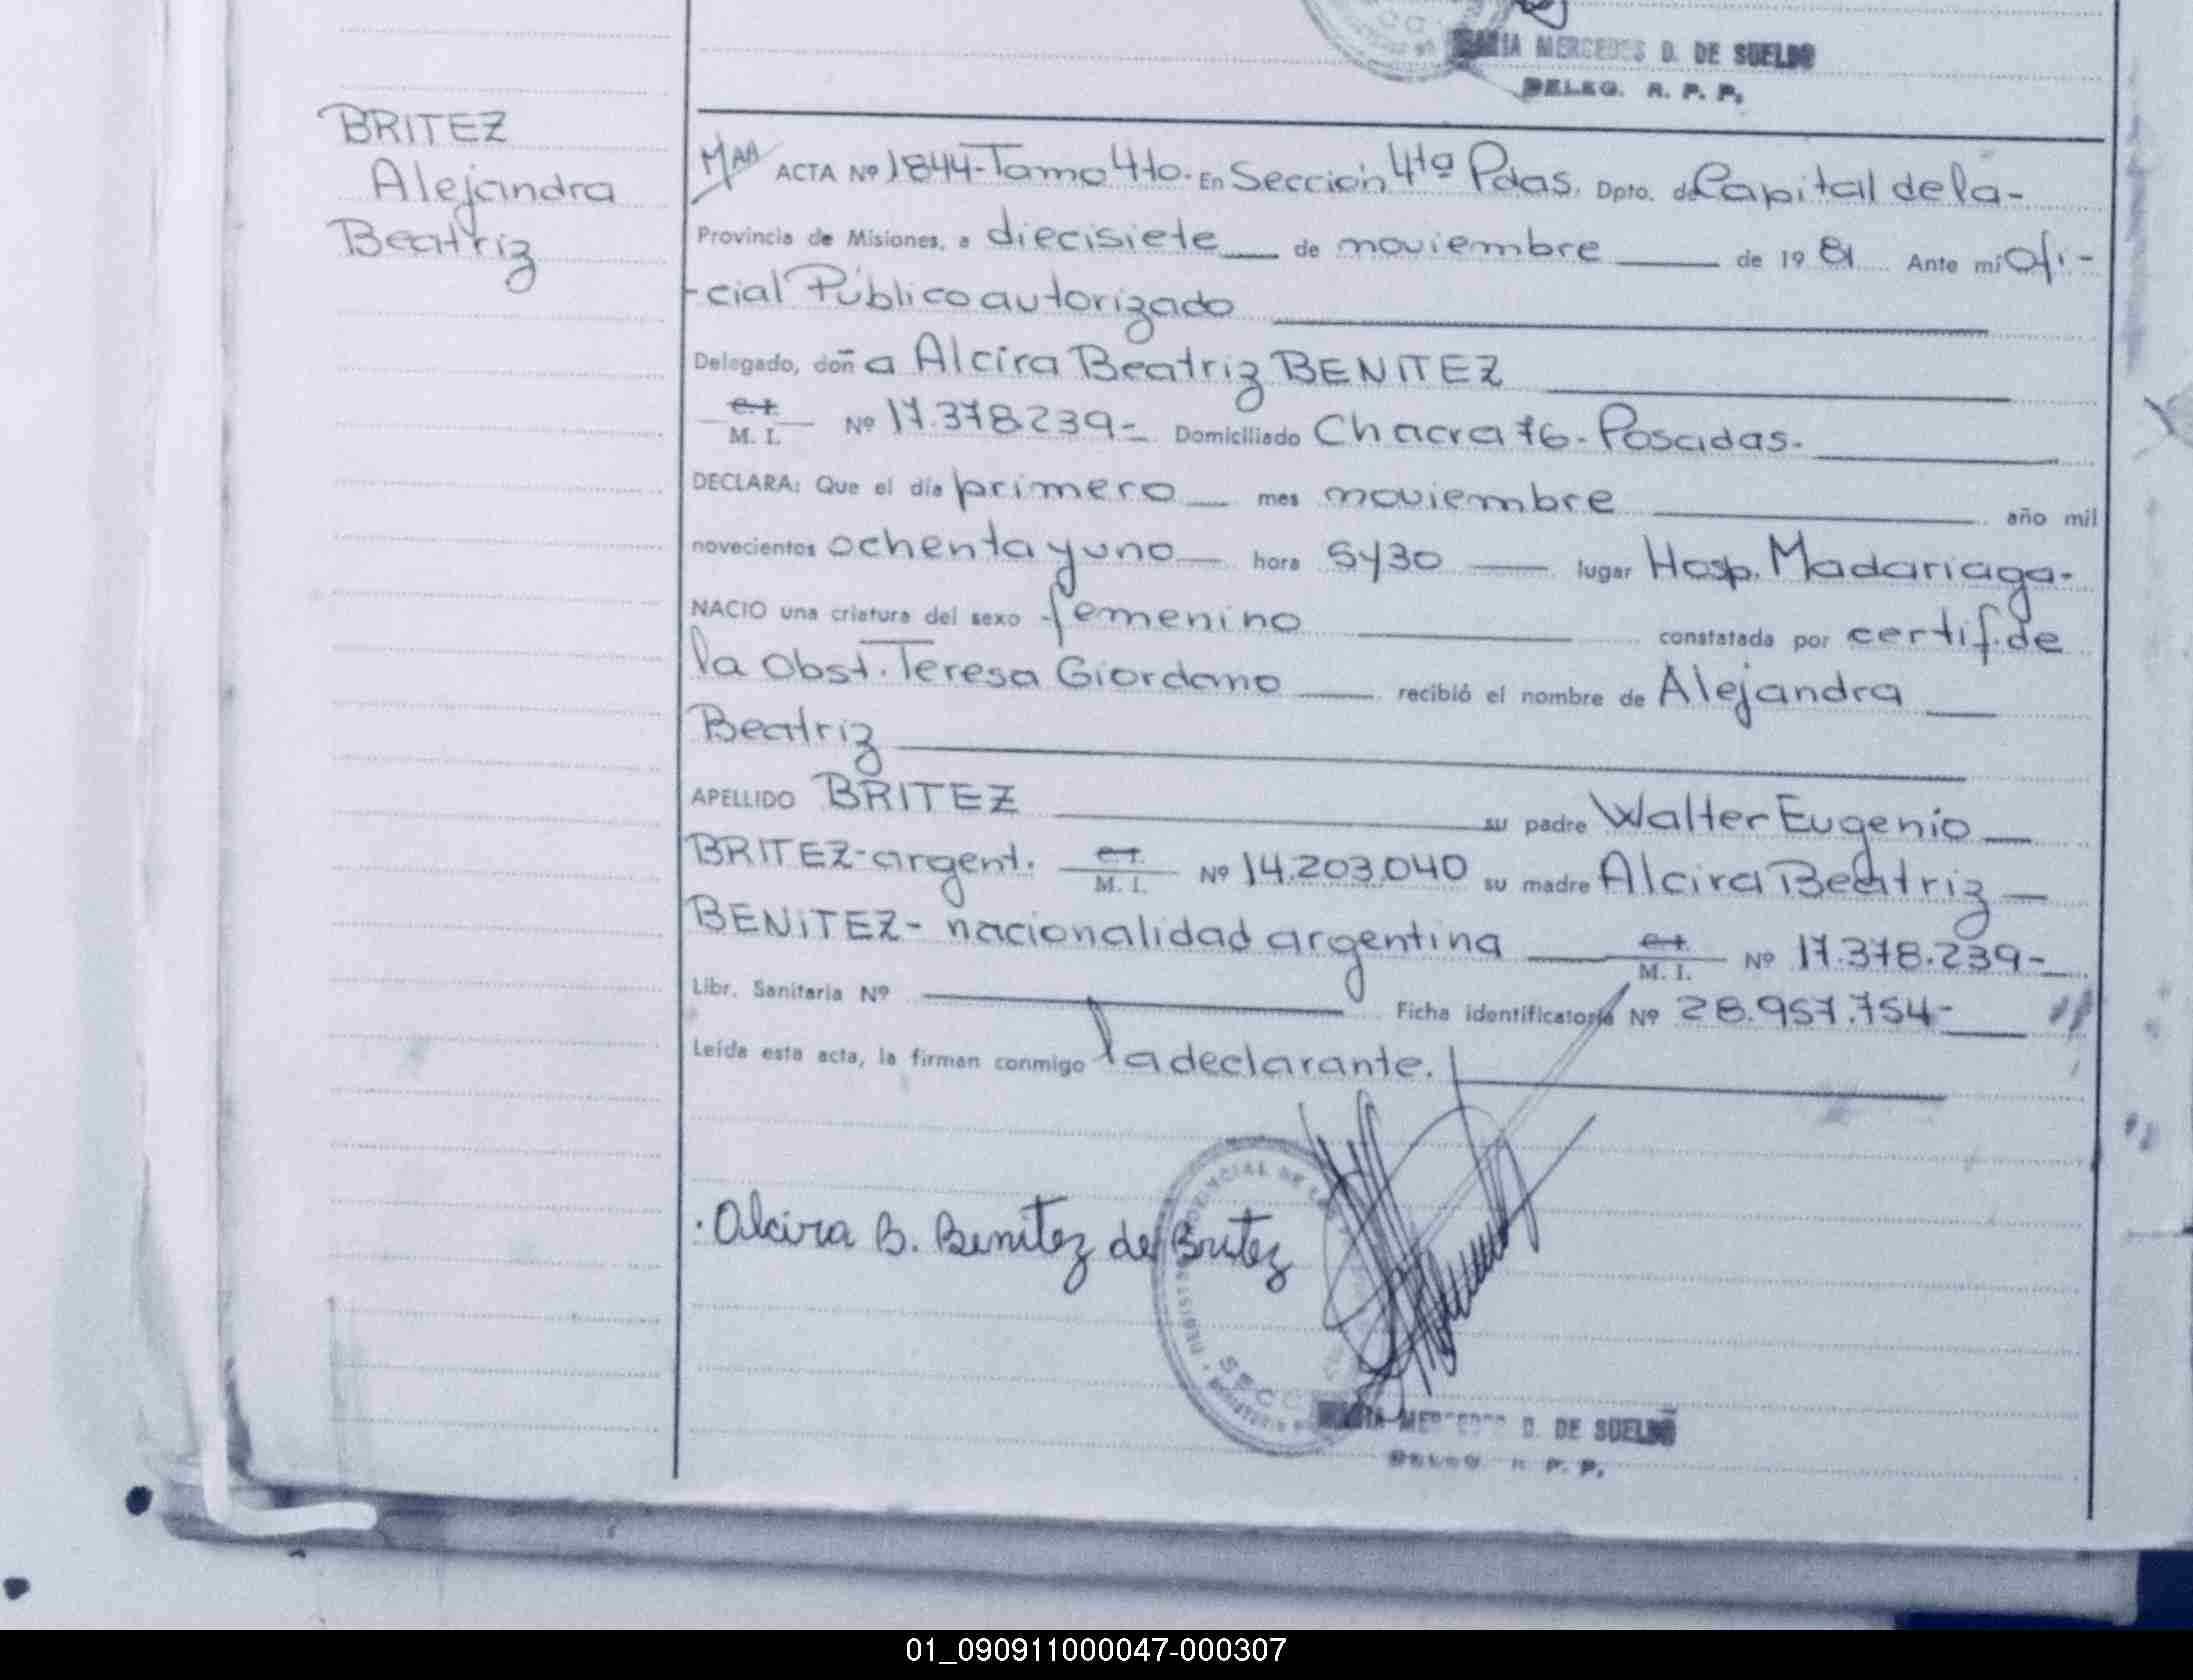 MARIA MERCEDES D. DE SUELDO
DELEG. R. P. P.
BRITEZ
Alejandra
Beatriz
ACTA Nº 1844-Tomo 4to. En Sección 4ta Pdas. Dpto. de Capital de la-
Provincia de Misiones, a diecisiete de noviembre de 19 81 Ante mi Ofi-
-cial Público autorizado
Delegado, doña Alcira Beatriz BENITEZ
C.I. M. I. Nº 17.378.239- Domiciliado Chacra 76- Posadas-
DECLARA: Que el día primero mes noviembre año mil
novecientos ochenta y uno hora 5y30 lugar Hosp. Madariaga-
NACIO una criatura del sexo femenino constatada por certif. de
la Obst. Teresa Giordano recibió el nombre de Alejandra
Beatriz
APELLIDO BRITEZ su padre Walter Eugenio
BRITEZ-argent. C.I. M. I. Nº 14.203.040 su madre Alcira Beatriz
BENITEZ- nacionalidad argentina C.I. M. I. Nº 17.378.239-
Libr. Sanitaria Nº Ficha identificatoria Nº 28.957.754-
Leída esta acta, la firman conmigo la declarante.
Alcira B. Benitez de Britez
MARIA MERCEDES D. DE SUELDO
DELEG. R. P. P.
01_090911000047-000307